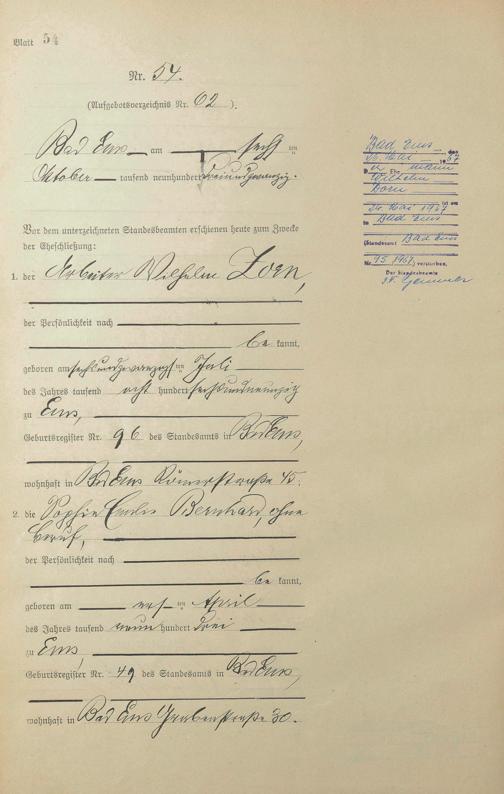 Blatt 54
Nr. 54.
(Aufgebotsverzeichnis Nr. 62).
Bad Ems am sechs ten
Oktober tausend neunhundert dreiundzwanzig.
Vor dem unterzeichneten Standesbeamten erschienen heute zum Zwecke
der Eheschließung:
1. der Arbeiter Wilhelm Dorn,
der Persönlichkeit nach
be kannt,
geboren am sechsundzwanzigs ten Juli
des Jahres tausend acht hundert sechsundneunzig
zu Ems,
Geburtsregister Nr. 96 des Standesamts in Bad Ems,
wohnhaft in Bad Ems Römerstraße 45.
2. die Sophie Emilie Bernhard, ohne
Beruf,
der Persönlichkeit nach
be kannt,
geboren am ers ten April
des Jahres tausend neun hundert drei
zu Ems,
Geburtsregister Nr. 49 des Standesamts in Bad Ems,
wohnhaft in Bad Ems Grabenstraße 30.
Bad Ems, den
26. Mai 1967
D er Ehemann
Wilhelm
Dorn
ist am
24. Mai 1967
in Bad Ems
(Standesamt Bad Ems
Nr. 75/1967) verstorben.
Der Standesbeamte